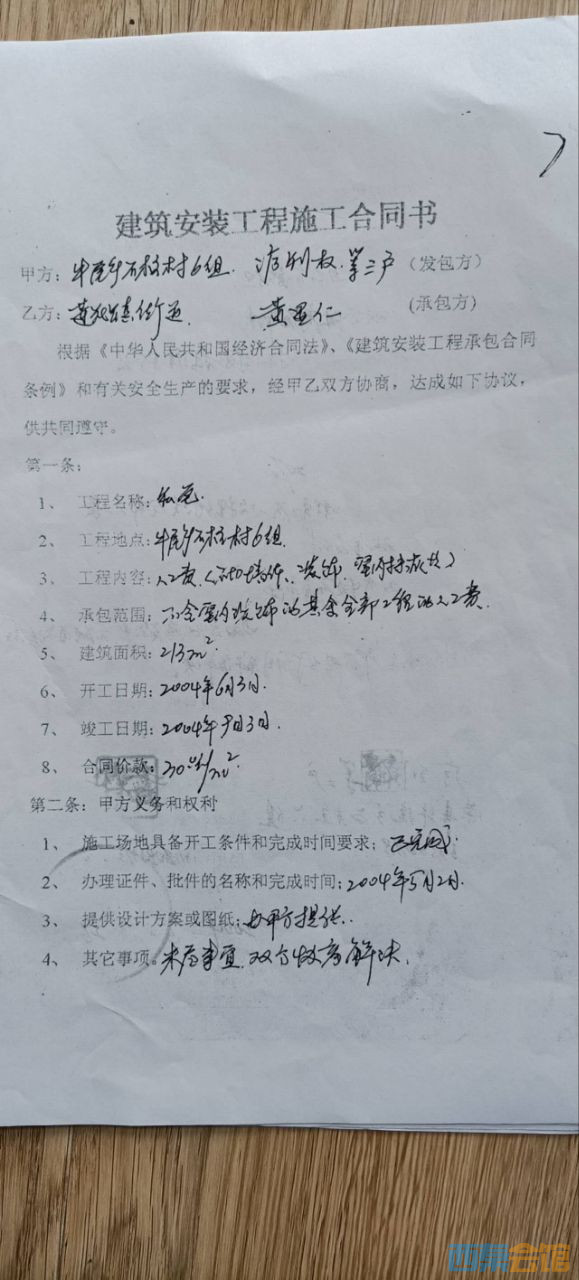 建筑安装工程施工合同书
甲方：牛尾乡石柱村6组  等三户（发包方）
乙方： 黄显仁 (承包方)
根据《中华人民共和国经济合同法》、《建筑安装工程承包合同
条例》和有关安全生产的要求，经甲乙双方协商，达成如下协议，
供共同遵守。
第一条：
1、 工程名称：
2、 工程地点：牛尾乡石柱村6组.
3、 工程内容：人工费
4、 承包范围：不含室内装饰的其余全部工程的人工费.
5、 建筑面积：213m².
6、 开工日期：2004年6月3日.
7、 竣工日期：2004年9月3日.
8、 合同价款：/m²
第二条：甲方义务和权利
1、 施工场地具备开工条件和完成时间要求：已完成.
2、 办理证件、批件的名称和完成时间：2004年5月2日.
3、 提供设计方案或图纸：由甲方提供.
4、 其它事项。未尽事宜.双方协商解决.
西祠会馆